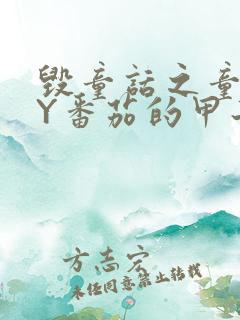 毁童话之童
Y番茄的甲
方志宏
未经同意禁止转载